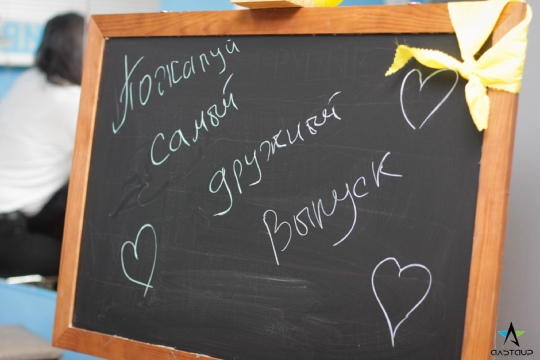 Пожалуй
самый
дружный
Выпуск
АЛЬТАИР